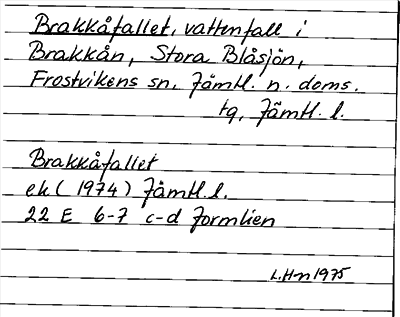 Brakkåfallet, vattenfall i
Brakkån, Stora Blåsjön,
Frostvikens sn, Jämtl. n. doms.
tg, Jämtl. l.
Brakkåfallet
ek ( 1974) Jämtl. l.
22 E 6-7 c-d Jormlien
L.H-n 1975